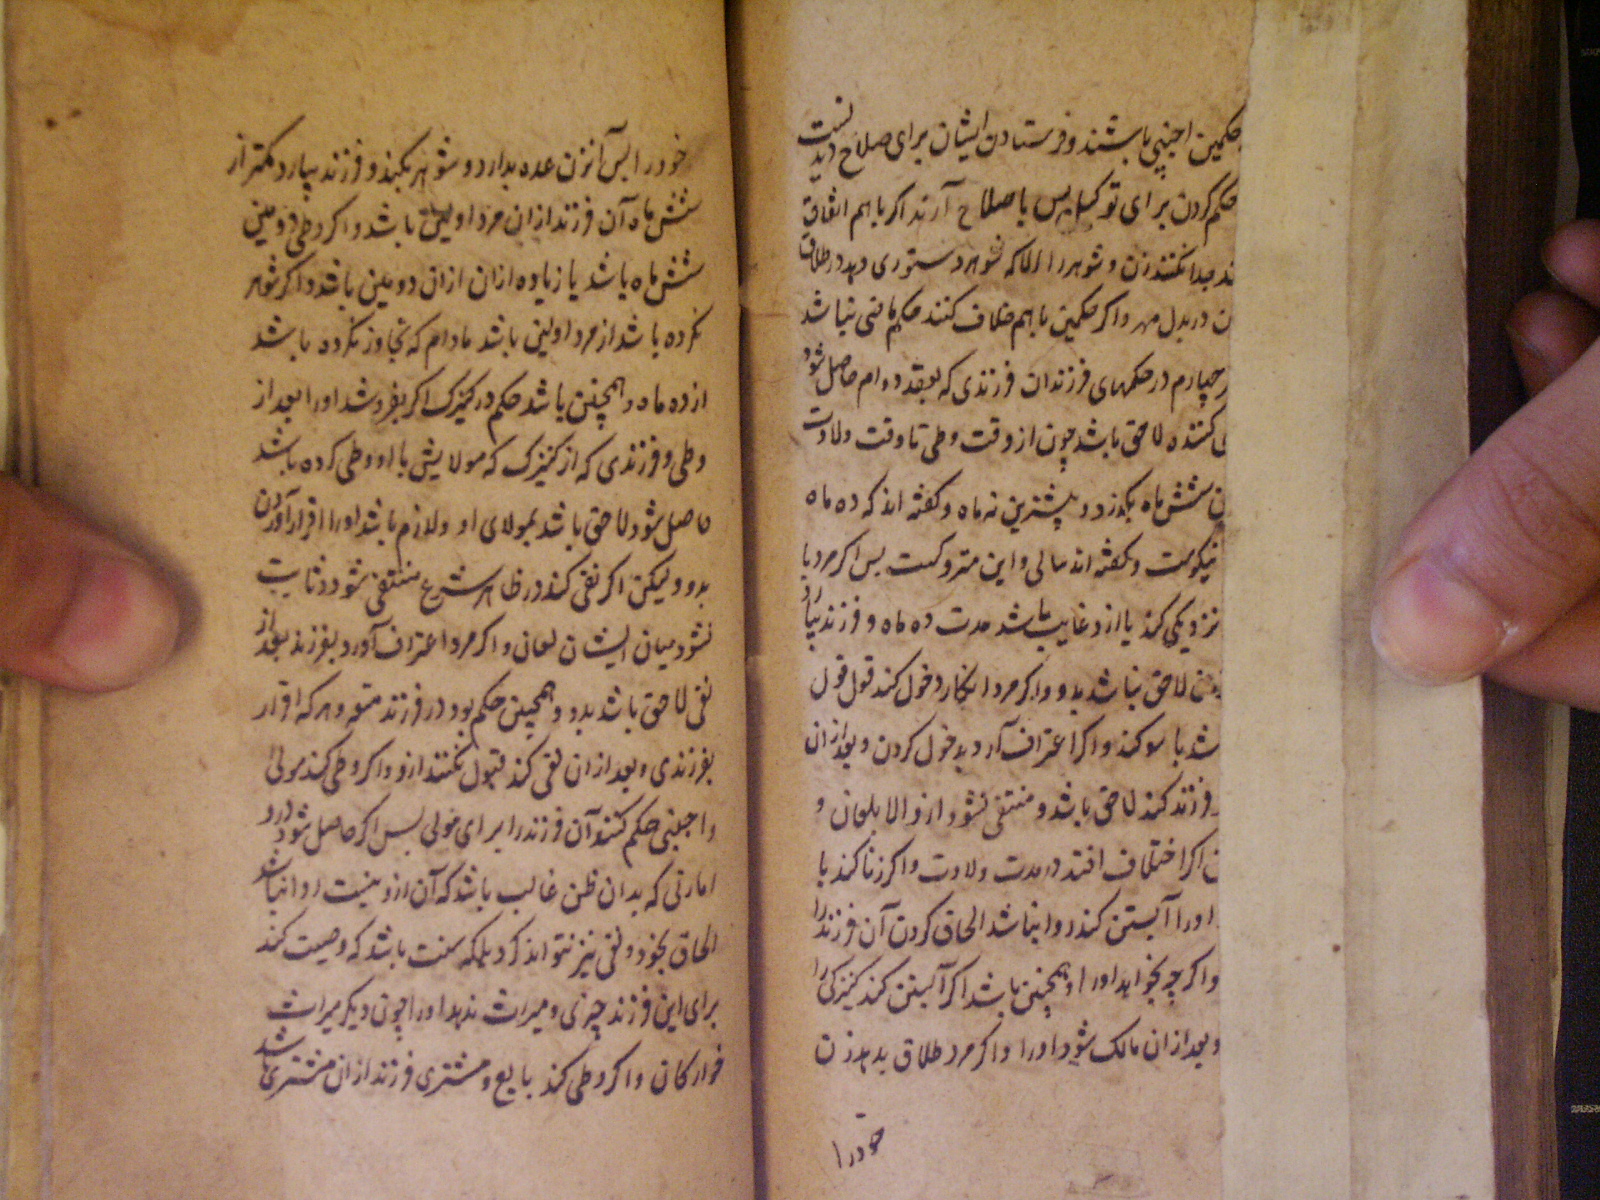 حکمین اجنبی باشند و فرستادن ایشان برای صلاح دید نست
حکم کردن برای توکیل پس باصلاح آرند اگر باهم اتفاق
ند جدا نکنند زن و شوهر را الا که شوهر دستوری دهد در طلاق
ن در بدل مهر و اگر حکمین باهم خلاف کنند حکم نباشد
چهارم در حکمهای فرزندان فرزندی که بعقد دوام حاصل شود
کننده لاحق باشد چون از وقت وطی تا وقت ولادت
ن شش ماه بگذرد و پیشترین نه ماه و گفته اند که ده ماه
نیکوست و گفته اند سالی و این متروکست پس اگر مرد با
نزدیکی کند یا ازو غایب باشد مدت ده ماه و فرزند بیارد
لاحق نباشد بدو و اگر مرد انکار دخول کند قول قول
شد با سوکند و اگر اعتراف آرد بدخول کردن و بعد ازان
فرزند کند لاحق باشد و منتفی نشود ازو الا بلعان و
ن اگر اختلاف افتد در مدت ولادت و اگر زنا کند با
اورا آبستن کند روا نباشد الحاق کردن آن فرزند را
و اگر چه بخواهد اورا و همچنین باشد اگر آبستن کند کنیزکی را
و بعد ازان مالک شود اورا و اگر مرد طلاق بدهد زن
خودرا
خودرا پس آنزن عده بدارد و شوهر بکند و فرزند بیارد کمتر از
شش ماه آن فرزند ازان مرد اولین باشد و اگر وطی دومین
شش ماه باشد یا زیاده ازان ازان دومین باشد و اگر شوهر
نکرده باشد از مرد اولین باشد مادام که تجاوز نکرده باشد
از ده ماه و همچنین باشد حکم در کنیزک اگر بفروشد اورا بعد از
وطی و فرزندی که از کنیزک که مولایش با او وطی کرده باشد
حاصل شود لاحق باشد بمولای او و لازم باشد اورا اقرار آوردن
بدو ولیکن اگر نفی کند در ظاهر شرع منتفی شود و ثابت
نشود میان ایشان لعان و اگر مرد اعتراف آورد بفرزند بعد از
نفی لاحق باشد بدو و همچنین حکم بود در فرزند متعه و هر که اقرار
بفرزندی و بعد ازان نفی کند قبول نکنند ازو و اگر وطی کند مولی
و اجنبی حکم کنند آن فرزند را برای مولی پس اگر حاصل شود درو
امارتی که بدان ظن غالب باشد که آن ازو نیست روا نباشد
الحاق بخود و نفی نیز نتواند کرد بلکه سنت باشد که وصیت کند
برای این فرزند چیزی و میراث ندهد اورا چون دیگر میراث
خوارکان و اگر وطی کند بایع و مشتری فرزند ازان مشتری باشد